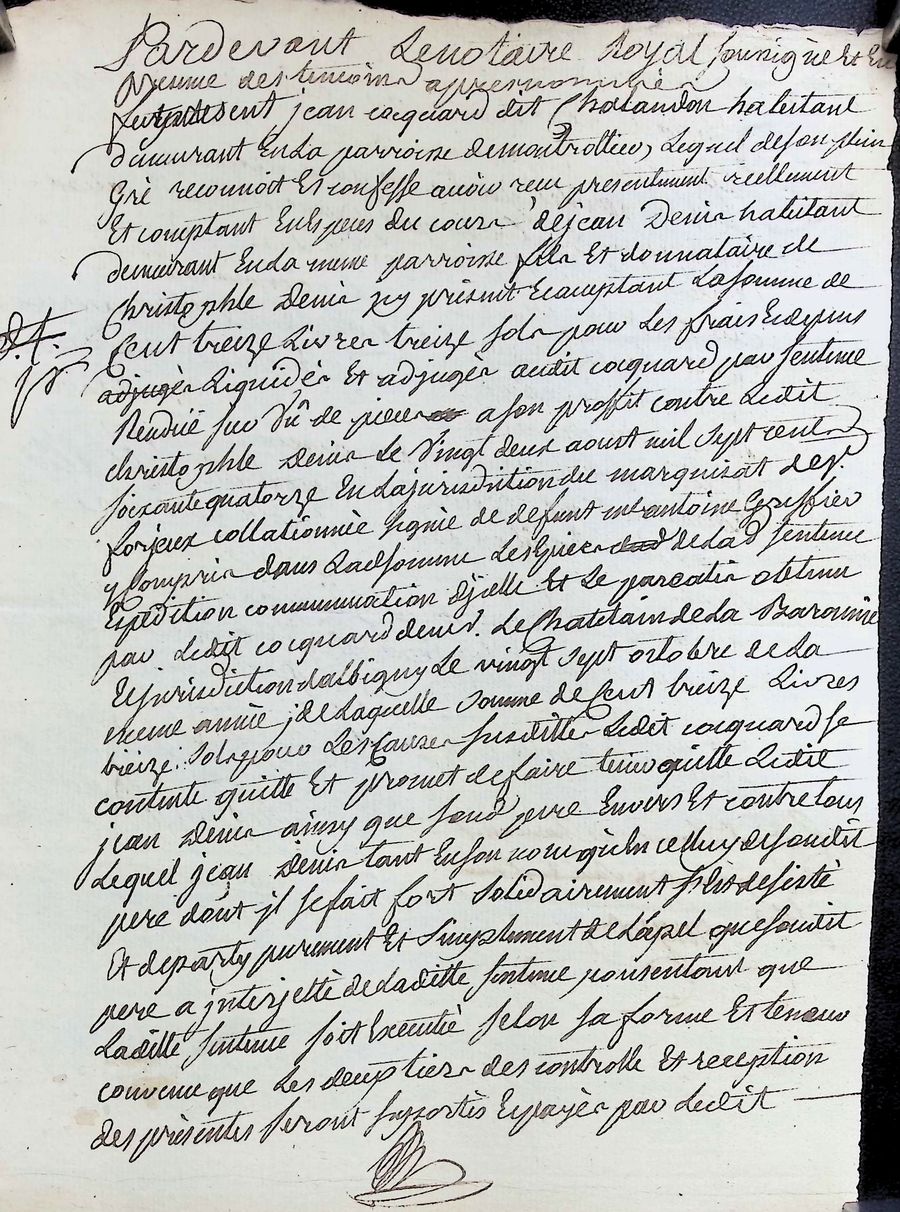 Pardevant Lenotaire Royal soussigné Et En
presence des temoins apres nommés
fut present jean cocquard dit Chalandon habitant
demeurant En La parroisse demontrollier, Lequel deson plein
Gré reconnoit Et confesse avoir reçu presentement reellement
Et comptant En Especes du cours de jean Denis habitant
demeurant En La meme parroisse fils Et donnataire de
Christophle Denis jcy présent Et acceptant La somme de
Cent treize Livres treize sols pour Les frais Et depens
adjugés Liquidés Et adjugés audit cocquard par sentence
Rendüe sur Vû de pieces a son proffit contre Ledit
christophle Denis Le Vingt deux aoust mil sept cent
soixante quatorze En La jurisdiction du marquizat de st.
forjeux collationnée signée de deffunt me antoine Greffier
y Compris dans Lad. somme Les Epices de Lad. sentence
Expedition communication d'jcelle Et Le pareatis obtenu
par Ledit cocquard de mr. Le Chatelain de La Baronnie
Et jurisdiction dalbigny Le vingt sept octobre de La
meme année, de Laquelle somme de Cent treize Livres
treize sols pour Les Causes susdittes Ledit cocquard se
contente quitte Et promet de faire tenir quitte Ledit
jean Denis ainsy que sond. pere Envers Et contre tous
Lequel jean Denis tant En son nom qu'En celluy de sondit
pere dont jl se fait fort solidairement s'est desisté
Et departy purement Et simplement de L'apel que sondit
pere a jnterjetté de Laditte sentence consentant que
Laditte sentence soit Executée selon sa forme Et teneur
convenu que Les deux tiers des controlle Et reception
des présentes seront suportés Et payés par Ledit